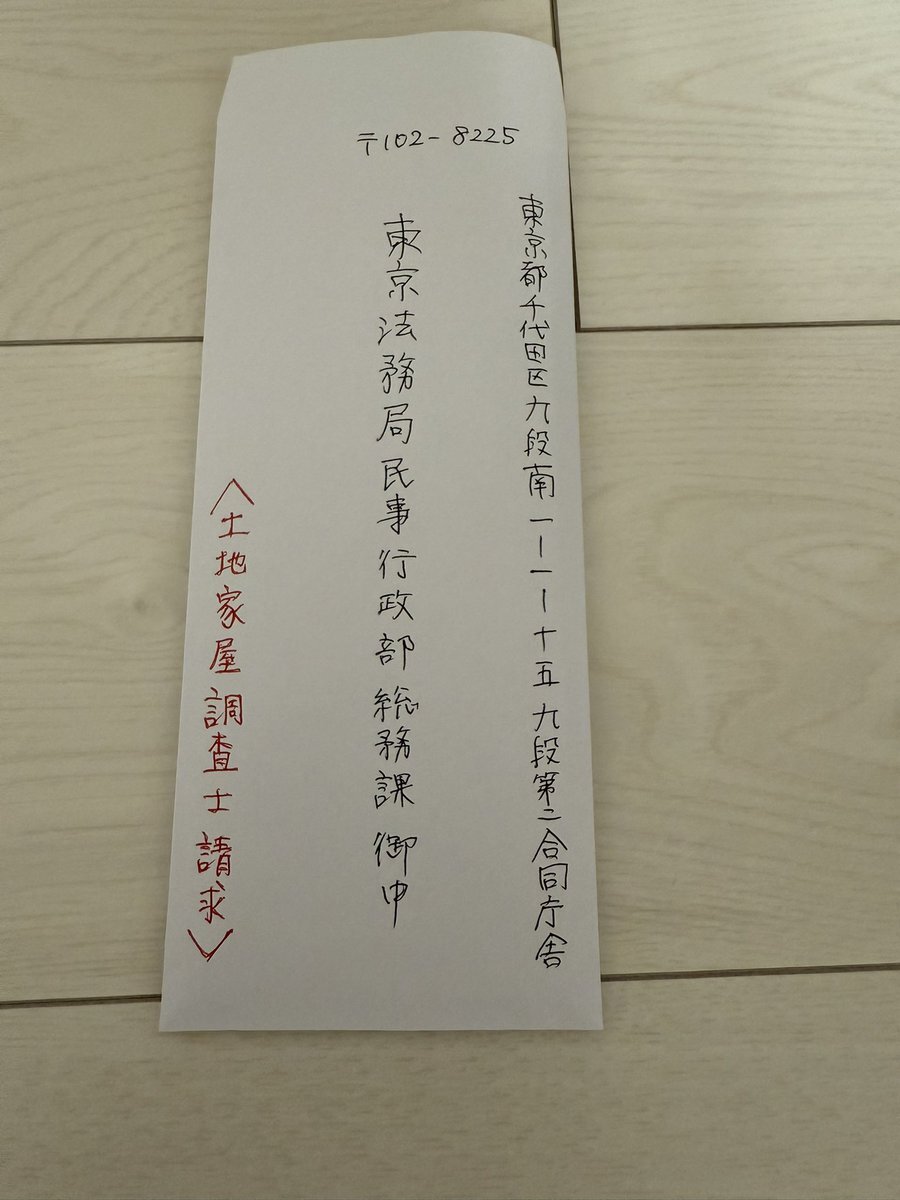 〒102-8225
東京都千代田区九段南一ー一ー十五 九段第二合同庁舎
東京法務局民事行政部総務課 御中
〈土地家屋調査士請求〉